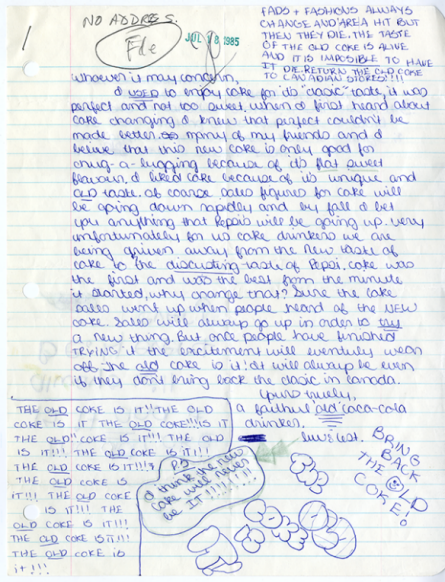 1
NO ADDRESS.
File
JUL 18 1985
FADS & FASHIONS ALWAYS
CHANGE AND AREA HIT BUT
THEN THEY DIE. THE TASTE
OF THE OLD COKE IS ALIVE
AND IT IS IMPOSIBLE TO HAVE
IT DIE. RETURN THE OLD COKE
TO CANADIAN STORES!!!
whoever it may concern,
I USED to enjoy coke for its "clasic" taste, it was
perfect and not too sweet, when I first heard about
coke changing I knew that perfect couldn't be
made better. many of my friends and I
believe that this new coke is only good for
chug-a-lugging because of its flat sweet
flavour, I liked coke because of its unique and
OLD taste. of coarse sales figures for coke will
be going down rapidly and by fall I bet
you anything that Pepsi will be going up. very
unfortunately for us coke drinkers we are
being driven away from the new taste of
coke to the discusting taste of Pepsi. coke was
the first and was the best from the minute
it started, why change that? Sure the coke
sales went up when people heard of the NEW
coke. Sales will always go up in order to try
a new thing. But once people have finished
TRYING it the excitement will eventuly wear
off. The old coke is it! It will always be even
if they don't bring back the clasic in Canada.
Yours truely,
a faithful old coca-cola
drinker.
THE OLD COKE IS IT!! THE OLD
COKE IS IT THE OLD COKE!!! IS IT
THE OLD!! COKE IS IT!!! THE OLD
IS IT!!! THE OLD COKE IS IT!!!
THE OLD COKE IS IT!!!
THE OLD COKE IS
IT!!! THE OLD COKE
IS IT!!! THE
OLD COKE IS IT!!!
THE OLD COKE IS IT!!!
THE OLD COKE IS
it!!!
P.S
I think the new
coke will never
be IT!!!!!!!!
BRING
BACK
THE OLD
COKE!
THE
OLD
COKE
IS
IT